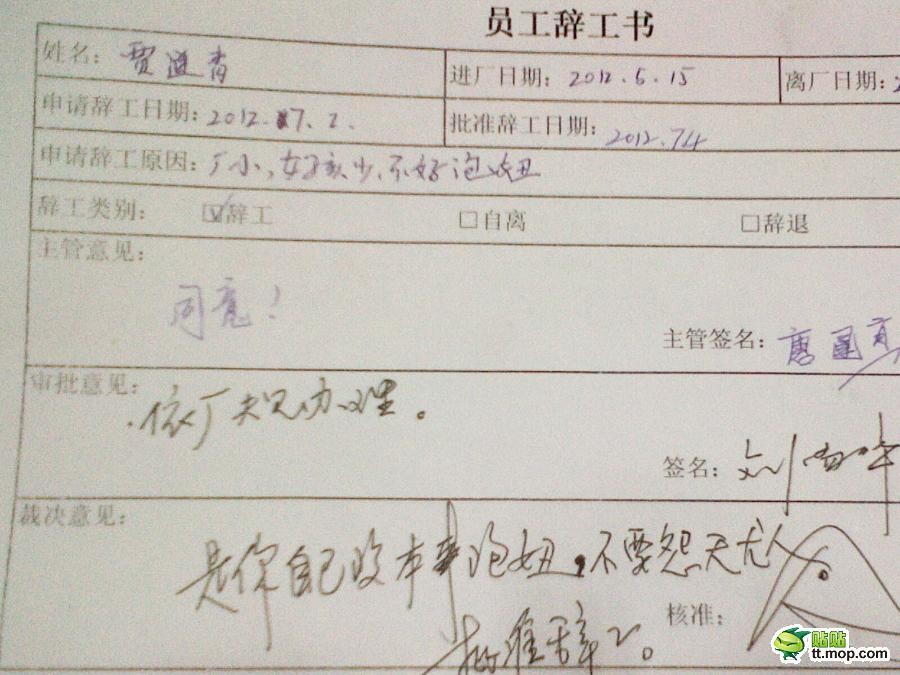 员工辞工书
姓名：贾涟青 进厂日期：2012.5.15 离厂日期：2
申请辞工日期：2012.7.2. 批准辞工日期：2012.7.4
申请辞工原因：厂小，女孩少，不好泡妞
辞工类别：☑辞工 □自离 □辞退
主管意见：
同意！
主管签名：唐国
审批意见：
依厂规办理。
签名：刘
裁决意见：
是你自己没本事泡妞，不要怨天尤人。
核准：
批准辞工。
贴贴
tt.mop.com